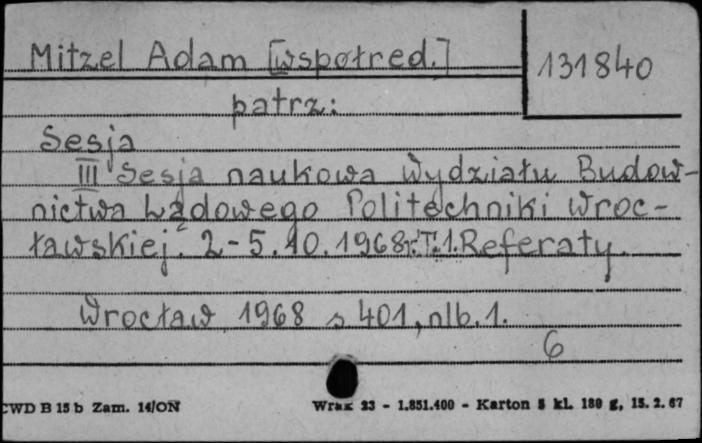 Mitzel Adam [współred.]
131840
patrz:
Sesja
III Sesja naukowa Wydziału Budow-
nictwa Lądowego Politechniki Wroc-
ławskiej. 2-5.10.1968r. T.1. Referaty.
Wrocław 1968 s 401, nlb. 1.
6
CWD B 15 b Zam. 14/ON
Wrak 23 - 1.851.400 - Karton 5 kl. 180 g, 15. 2. 67